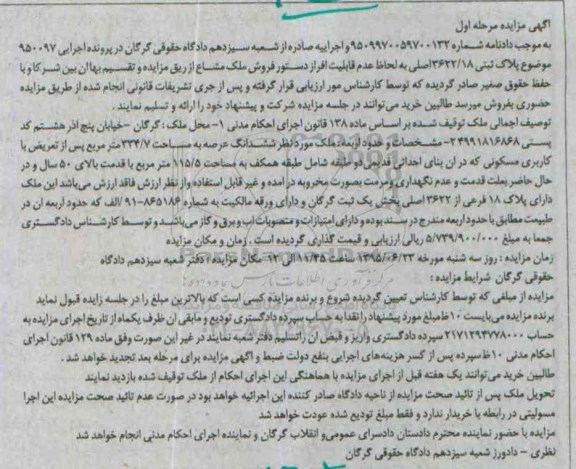 آگهی مزایده مرحله اول
به موجب دادنامه شماره ۹۵۰۹۹۷۰۰۵۹۷۰۰۱۳۲ و اجراییه صادره از شعبه سیزدهم دادگاه حقوقی گرگان در پرونده اجرایی ۹۵۰۰۹۷
موضوع پلاک ثبتی ۳۶۲۲/۱۸ اصلی به لحاظ عدم قابلیت افراز دستور فروش ملک مشاع از ریق مزایده و تقسیم بهاان بین شرکا و با
حفظ حقوق صغیر صادر گردیده که توسط کارشناس مور ارزیابی قرار گرفته و پس از جری تشریفات قانونی انجام شده از طریق مزایده
حضوری بفروش میرسد طالبین خرید می توانند در جلسه مزایده شرکت و پیشنهاد خود را ارائه و تسلیم نمایند .
توصیف اجمالی ملک توقیف شده بر اساس ماده ۱۳۸ قانون اجرای احکام مدنی ۱- محل ملک : گرگان -خیابان پنج اذر هشتم کد
پستی ۲۴۹۹۱۸۱۶۸۶۸- مشخصات و حدود اربعه: ملک مورد نظر ششدانگ عرصه به مساحت ۳۳۴/۷ متر مربع پس از تعریض با
کاربری مسکونی که در ان بنای احداثی قدیمی دو طبقه شامل طبقه همکف به مساحت ۱۱۵/۵ متر مربع با قدمت بالای ۵۰ سال و در
حال حاضر بعلت قدمت و عدم نگهداری و مرمت بصورت مخروبه در آمده و غیر قابل استفاده واز نظر ارزش فاقد ارزش می باشد این ملک
دارای پلاک ۱۸ فرعی از ۳۶۲۲ اصلی بخش یک ثبت گرگان و دارای ورقه مالکیت به شماره ۸۶۵۱۸۶-۹۱/الف که حدود اربعه ان در
طبیعت مطابق با حدود اربعه مندرج در سند بوده و دارای امتیازات و منصوبات اب و برق و گاز می باشد و توسط کارشناس دادگستری
جمعا به مبلغ ۵/۷۳۹/۹۰۰/۰۰۰ ریالی ارزیابی و قیمت گذاری گردیده است . زمان و مکان مزایده
زمان مزایده : روز سه شنبه مورخه ۱۳۹۵/۰۶/۲۳ ساعت ۱۱/۴۵ الی ۱۲ مکان مزایده : دفتر شعبه سیزدهم دادگاه
حقوقی گرگان شرایط مزایده :
مزایده از مبلغی که توسط کارشناس تعیین گردیده شروع و برنده مزایده کسی است که بالاترین مبلغ را در جلسه زایده قبول نماید
برنده مزایده می بایست ۱۰٪ مبلغ مورد پیشنهاد را نقدا به حساب سپرده دادگستری تودیع و مابقی ان ظرف یکماه از تاریخ اجرای مزایده به
حساب ۲۱۷۱۲۹۳۷۷۸۰۰۰ سپرده دادگستری واریز و قبض ان راتسلیم دفتر شعبه نمایند در غیر این صورت وفق ماده ۱۲۹ قانون اجرای
احکام مدنی ۱۰٪ سپرده پس از کسر هزینه های اجرایی بنفع دولت ضبط و اگهی مزایده برای مرحله بعد تجدید خواهد شد .
طالبین خرید می توانند یک هفته قبل از اجرای مزایده با هماهنگی این اجرای احکام از ملک توقیف شده بازدید نمایند
تحویل ملک پس از تائید صحت مزایده از ناحیه دادگاه صادر کننده این اجرائیه خواهد بود در صورت عدم تائید صحت مزایده این اجرا
مسولیتی در رابطه با خریدار ندارد و فقط مبلغ تودیع شده عودت خواهد شد
مزایده با حضور نماینده محترم دادستان دادسرای عمومی و انقلاب گرگان و نماینده اجرای احکام مدنی انجام خواهد شد
نظری - دادورز شعبه سیزدهم دادگاه حقوقی گرگان